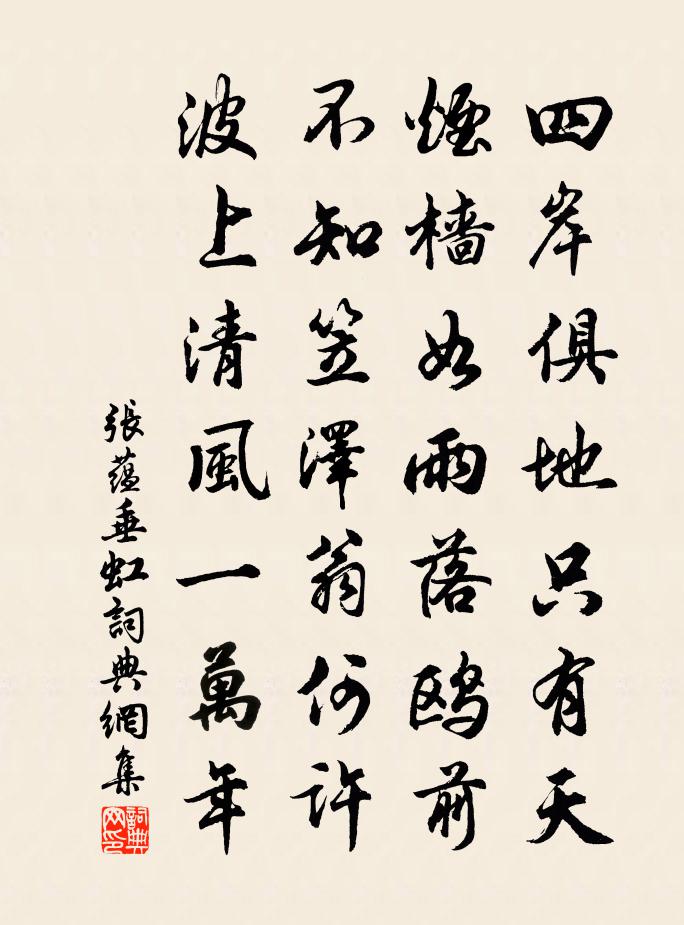 四岸俱地只有天
煙檣如雨落鷗前
不知笠澤翁何許
波上清風一萬年
張蘊垂虹詞典網集
詞典網印